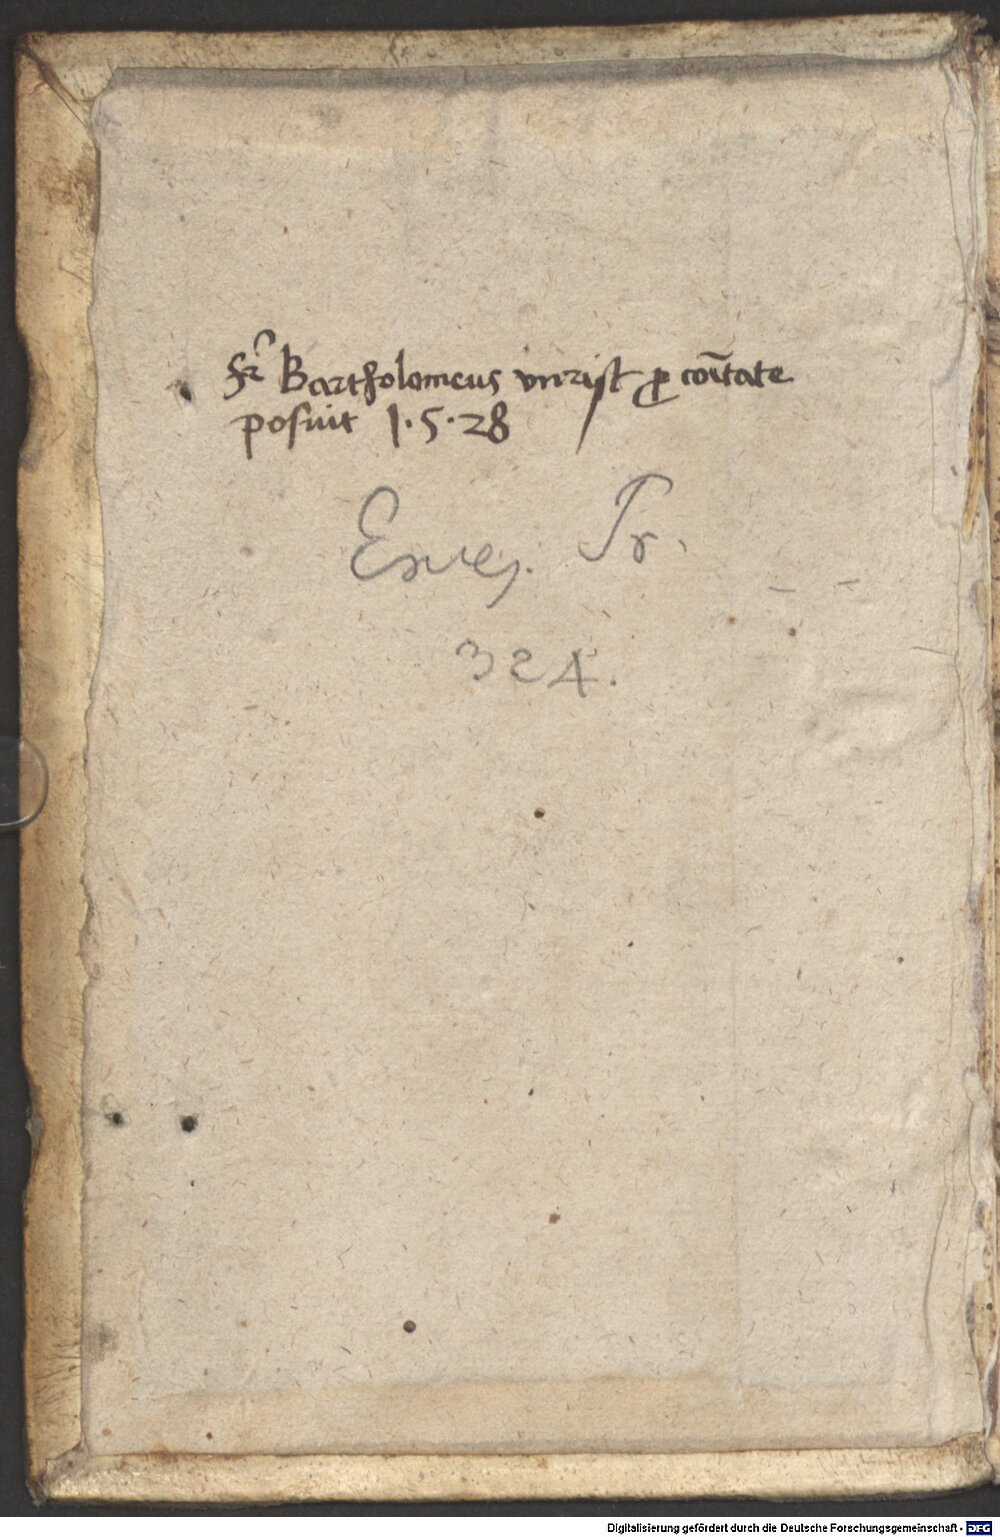 Fr Bartholomeus vnrist ꝓ coītate
posuit 1·5·28
Exeg. Pr.
324.
Digitalisierung gefördert durch die Deutsche Forschungsgemeinschaft - DFG